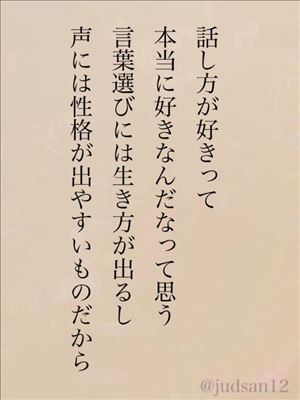 話し方が好きって
本当に好きなんだなって思う
言葉選びには生き方が出るし
声には性格が出やすいものだから
@judsan12